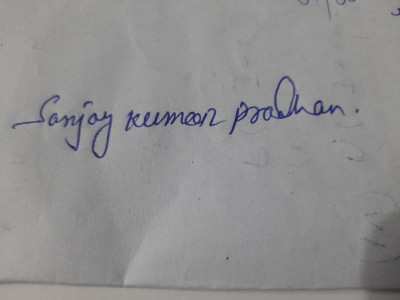 Sanjay kumar pradhan.